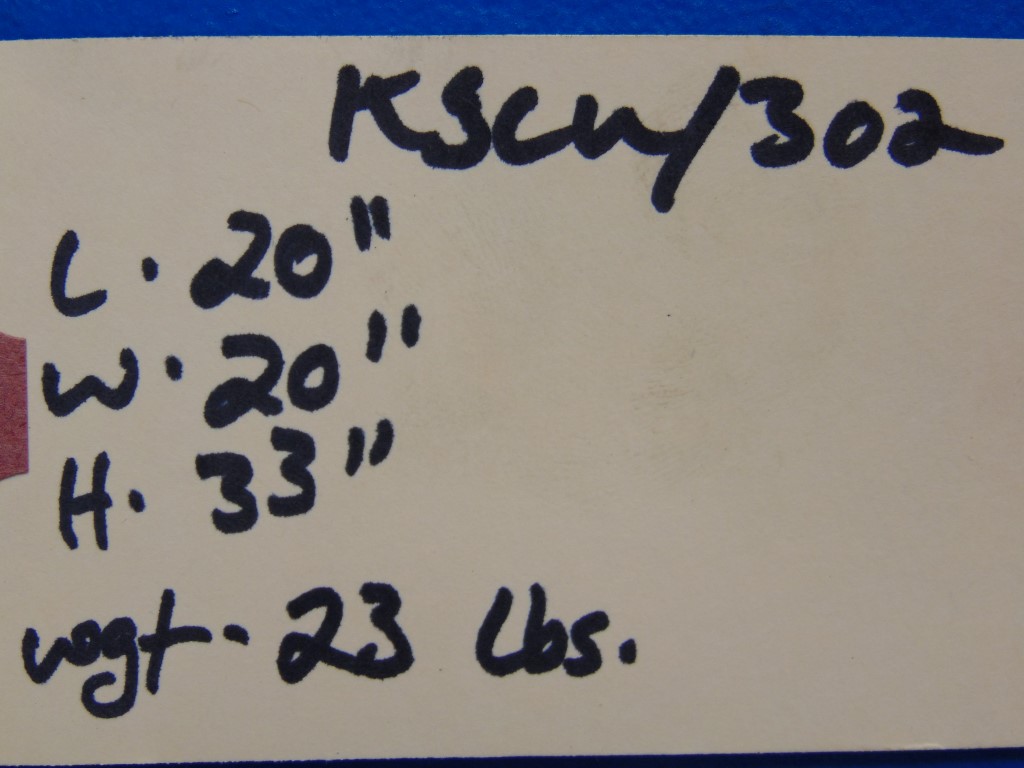 KSCW/302
L. 20"
W. 20"
H. 33"
wgt. 23 Lbs.